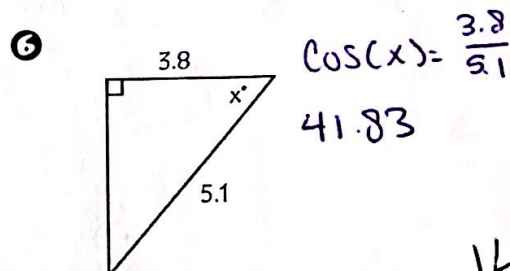 6
3.8
x°
5.1
Cos(x) = 3.8/5.1
41.83